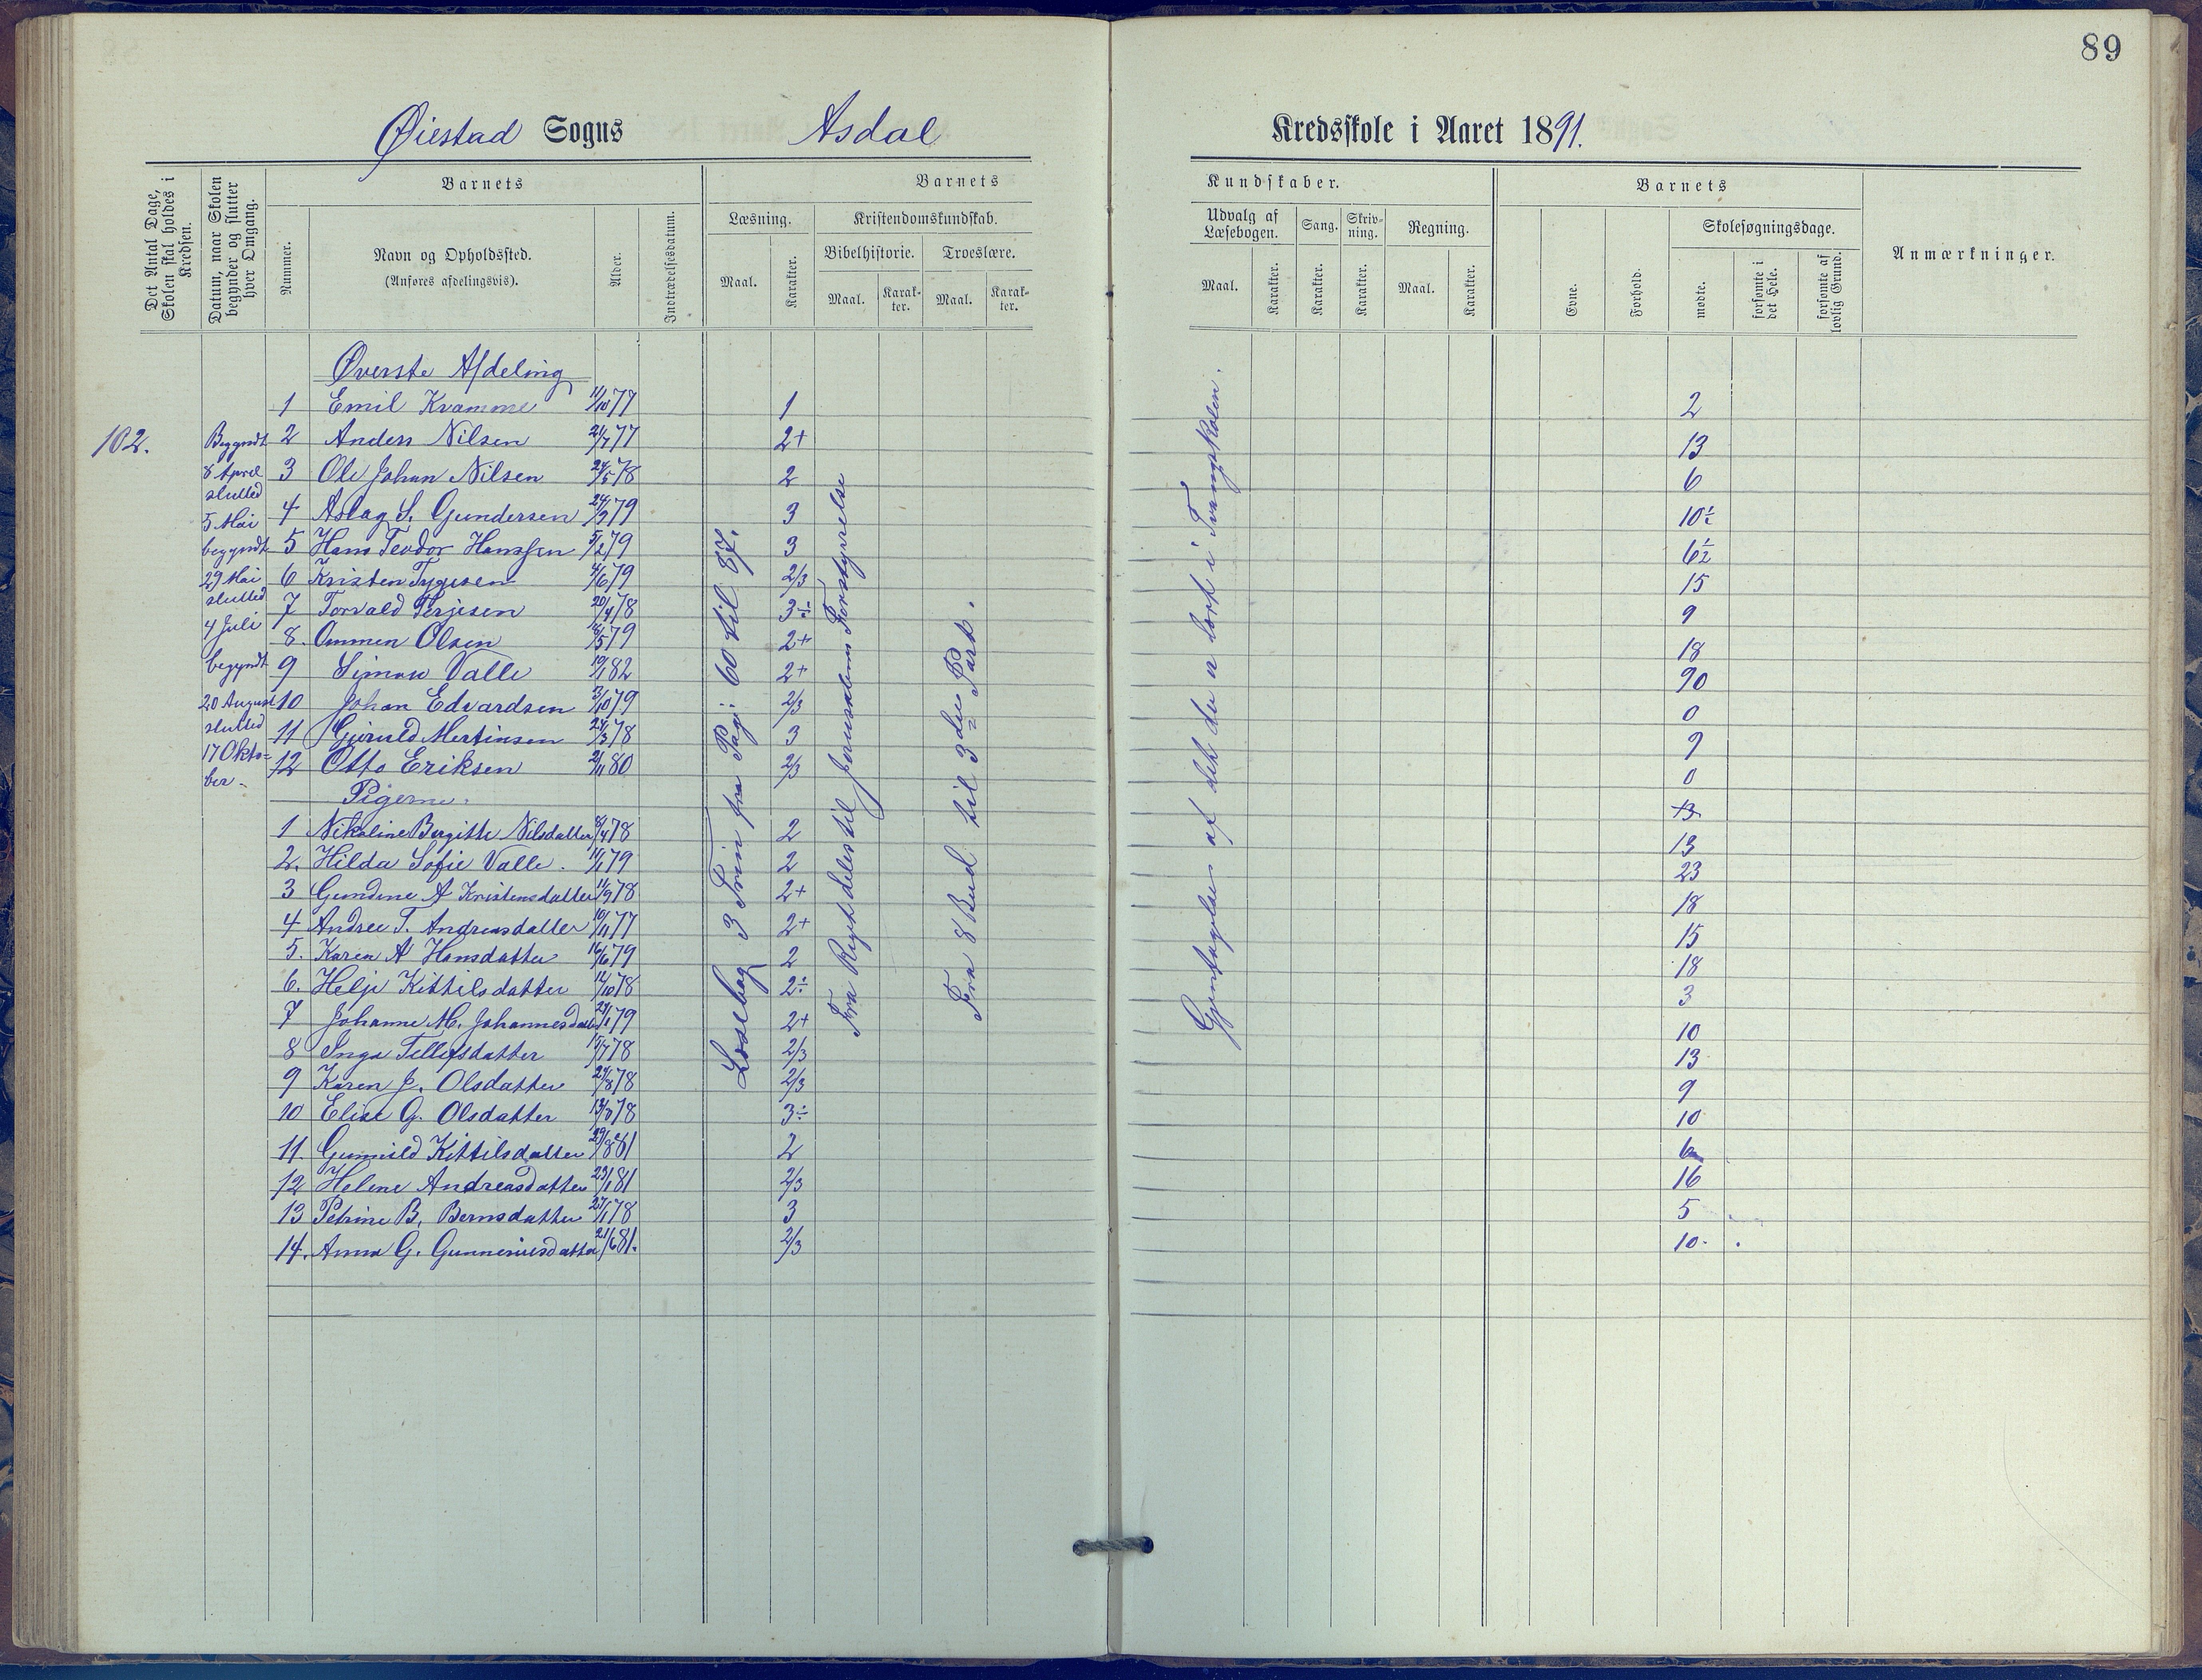 89
Øiestad Sogns Asdal Kredsskole i Aaret 1891.
Det Antal Dage, Skolen skal holdes i Kredsen.
Datum, naar Skolen begynder og slutter hver Omgang.
Barnets
Nummer.
Navn og Opholdssted.
(Anføres afdelingsvis).
Alder.
Indtrædelsesdatum.
Barnets Kundskaber.
Læsning.
Maal.
Karakter.
Kristendomskundskab.
Bibelhistorie.
Maal.
Karakter.
Troeslære.
Maal.
Karakter.
Udvalg af Læsebogen.
Maal.
Karakter.
Sang.
Karakter.
Skrivning.
Karakter.
Regning.
Maal.
Karakter.
Barnets
Evne.
Forhold.
Skolesøgningsdage.
mødte.
forsømte i det Hele.
forsømte af lovlig Grund.
Anmærkninger.
102.
Begyndt
8 April
slutted
5 Mai
begyndt
29 Mai
slutted
4 Juli
begyndt
20 August
slutted
17 Okto=
ber.
Øverste Afdeling
1 Emil Kvamme 11/10 77 1 2
2 Anders Nilsen 21/7 77 2+ 13
3 Ole Johan Nilsen 24/5 78 2 6
4 Aslag S. Gundersen 24/9 79 3 10½
5 Hans Teodor Hanssen 5/2 79 3 6½
6 Kristen Tygesen 4/6 79 2/3 15
7 Torvald Terjesen 20/4 78 3÷ 9
8. Ommen Olsen 5 79 2+ 18
9 Simon Valle 19/1 82 2+ 90
10 Johan Edvardsen 3/10 79 2/3 0
11 Gjeruld Mertinsen 24/3 78 3 9
12 Otto Eriksen 2/11 80 2/3 0
Pigerne. 13
1 Nikoline Birgitte Nilsdatter 8/4 78 2 13
2. Hilda Sofie Valle. 11/1 79 2 23
3 Gundine A Kristensdatter 11/9 78 2+ 18
4 Andree T. Andreasdatter 10/11 77 2+ 15
5. Karen A Hansdatter 16/6 79 2 18
6. Helje Kittilsdatter 12/10 78 2÷ 3
7 Johanne M. Johannesdatter 24/1 79 2+ 10
8 Inga Tellefsdatter 15/7 78 2/3 13
9 Karen J. Olsdatter 24/8 78 2/3 9
10 Elise G. Olsdatter 13/7 78 3÷ 10
11 Gunnild Kittilsdatter 29/8 81 2 6
12 Helene Andreasdatter 23/1 81 2/3 16
13 Petrine B. Bernsdatter 27/1 78 3 5
14. Anna G. Gunneriusdatter 21/6 81. 2/3 10.
Læsebog 3 Trin fra Pag: 60 til 87.
Fra Rigets deles til Jerusalems Forstyrrelse
Fra 8 Bud til 3die Part.
Gjentagelser af det de er lært i Tvangskolen.